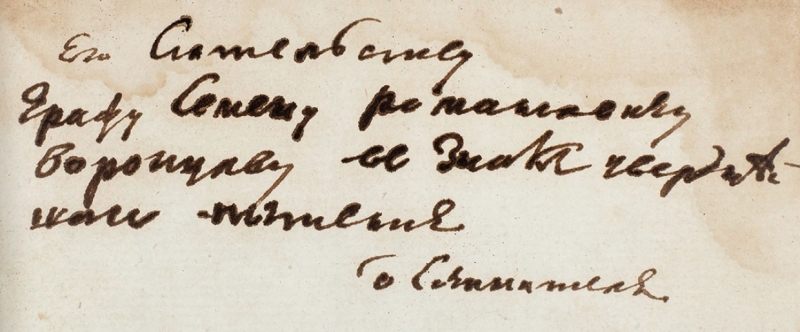 Его Сиятельству
Графу Семену романовичу
Воронцову въ Знакъ усерднѣ-
шаго почтенія
о Сочинителя